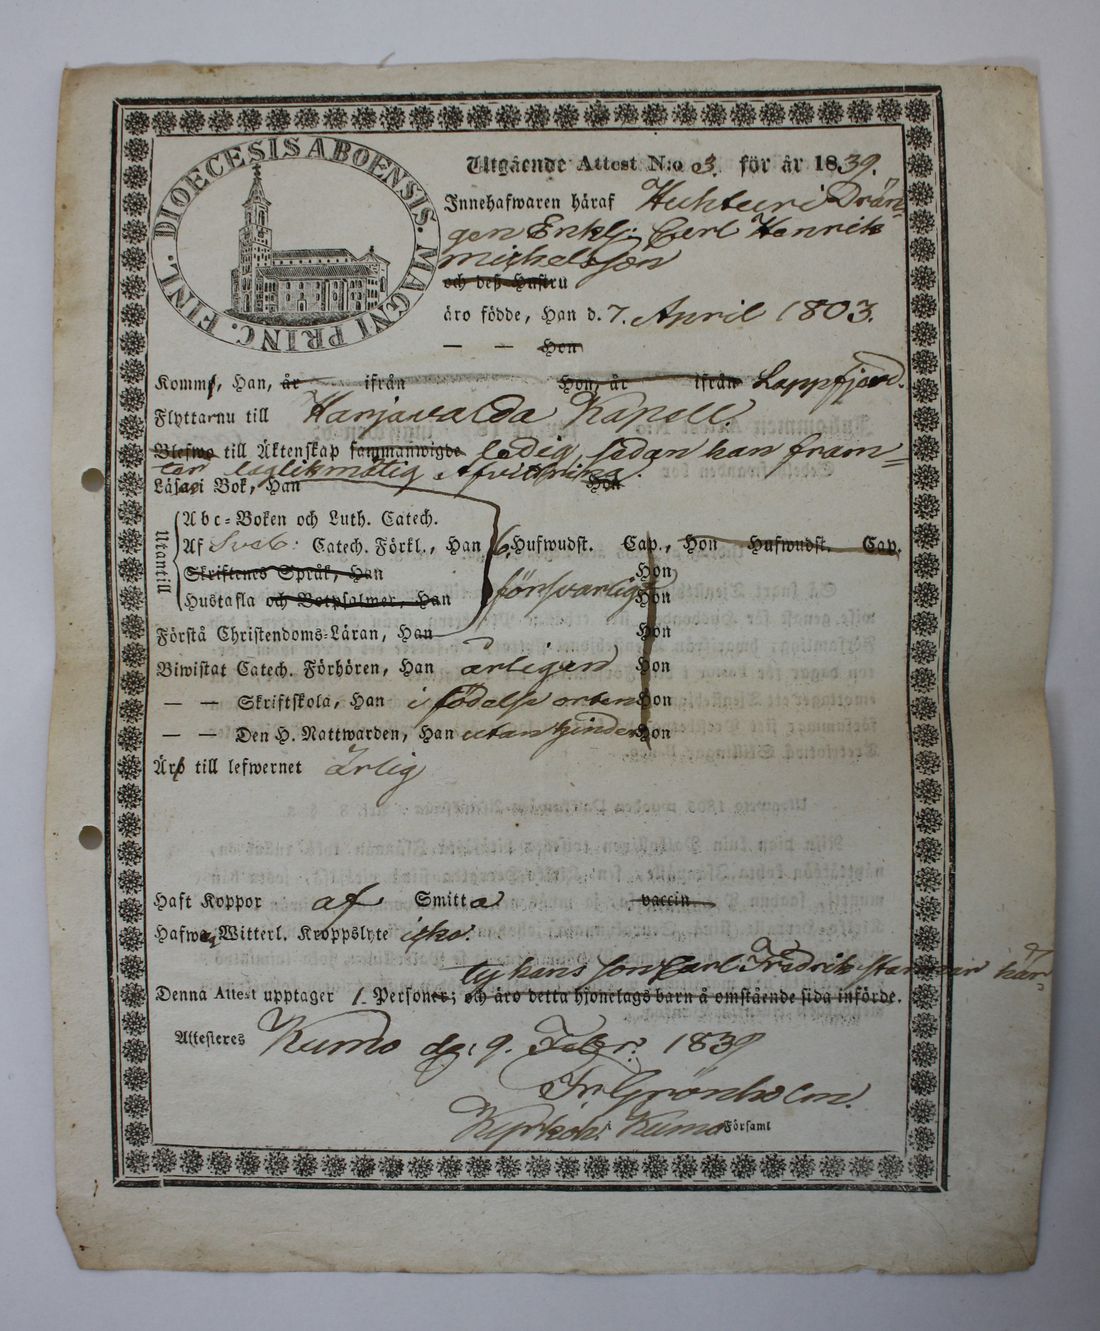 DIOECESIS ABOENSIS. MAGNI PRINC. FINL.
Utgående Attest N:o 03. för år 1839.
Innehafwaren häraf Huhturi Drän-
gen Enkl: Carl Henrik
Michelsson
och deß Hustru
äro födde, Han d. 7. April 1803.
— — Hon
Komm, Han, år ifrån Hon, år ifrån Lappfjärd.
Flyttar nu till Harjavalda Kapell.
Blefwo till Äktenskap sammanwigde ledig, sedan han fram-
ter laglikmätig Afvittring.
Läsa i Bok, Han Hon
Utantill
Abc-Boken och Luth. Catech.
Af Sveb: Catech. Förkl., Han 6. Hufwudst. Cap., Hon Hufwudst. Cap.
Skriftenes Språk, Han Hon
Hustafla och Botpsalmer, Han försvarligt Hon
Förstå Christendoms-Läran, Han Hon
Biwistat Catech. Förhören, Han årligen Hon
— — Skriftskola, Han i födelse orten Hon
— — Den H. Nattwarden, Han utan hinder Hon
Är till lefwernet ärlig
Haft Koppor af Smitta vaccin
Hafwa Witterl. Kroppslyte icke.
ty hans son Carl Fredrik stannar här
Denna Attest upptager 1 Personer; och äro detta hjonelags barn å omstående sida införde.
Attesteres Kumo d. 9. Febr. 1839
Fr Grönholm.
Kyrkoh. i Kumo Församl